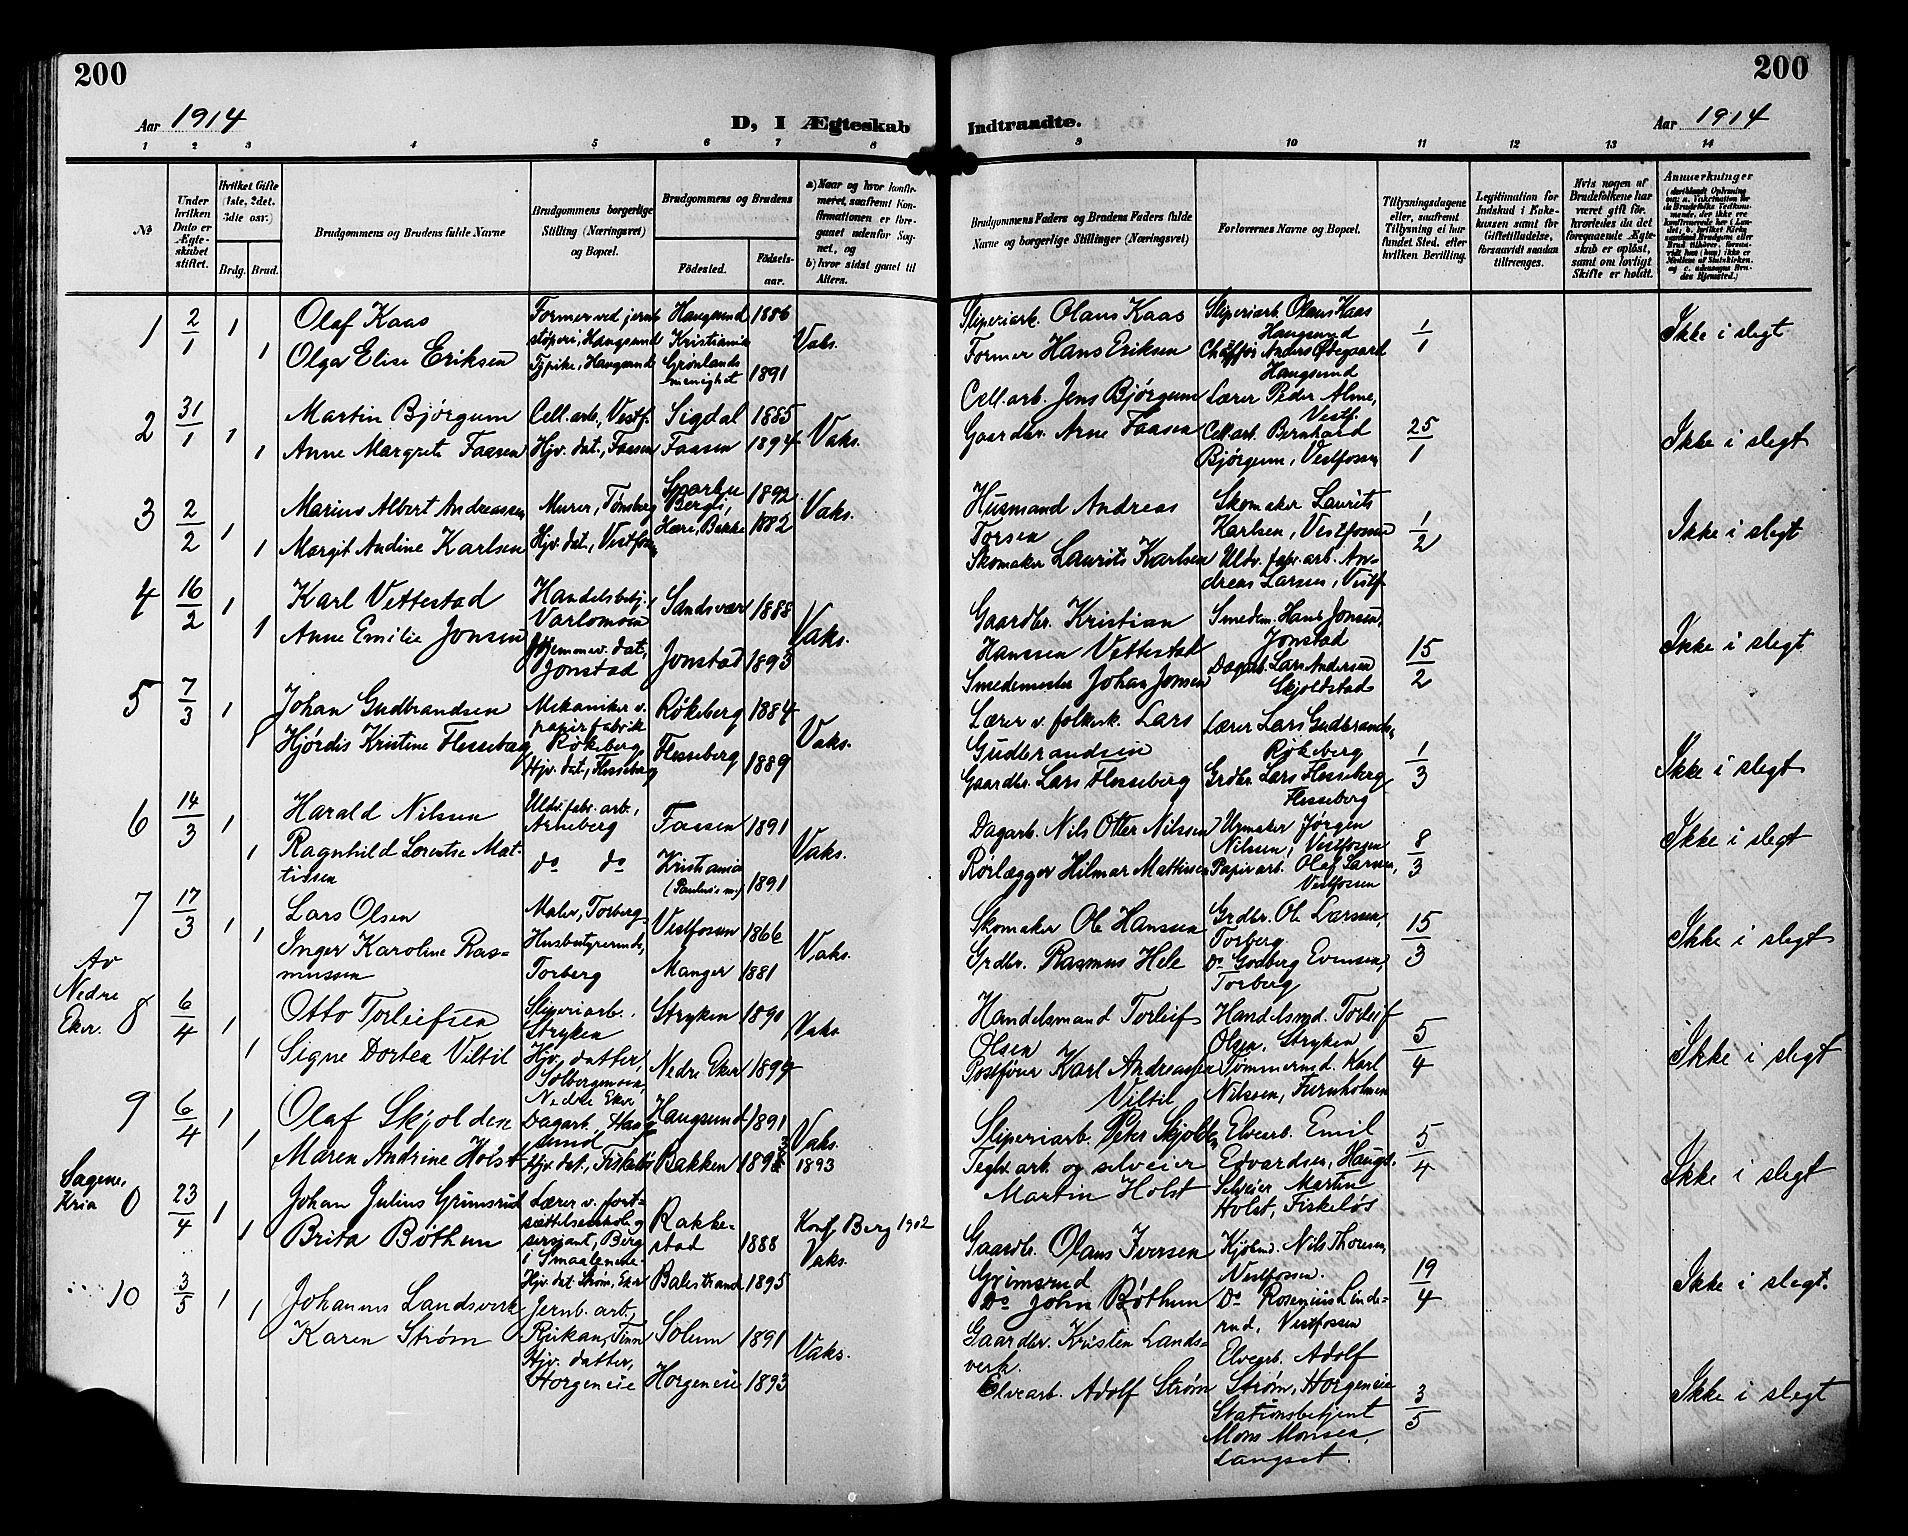 200
200
Aar 1914
D, I Ægteskab
Indtraadte.
Aar 1914
1 2 3 4 5 6 7 8 9 10 11 12 13 14
No
Under hvilken Dato er Ægteskabet stiftet.
Hvilket Gifte (1ste, 2det, 3die osv.)
Brdg. Brud.
Brudgommens og Brudens fulde Navne
Brudgommens borgerlige Stilling (Næringsvei) og Bopæl.
Brudgommens og Brudens
Fødested.
Fødselsaar.
a) Naar og hvor konfirmeret, saafremt Konfirmationen er foregaaet udenfor Sognet, og
b) hvor sidst gaaet til Alters.
Brudgommens Faders og Brudens Faders fulde Navne og borgerlige Stillinger (Næringsvei)
Forlovernes Navne og Bopæl.
Tillysningsdagene eller, saafremt Tillysning ei har fundet Sted, efter hvilken Bevilling.
Legitimation for Indskud i Enkekassen samt for Giftetilladelse, forsaavidt saadan tiltrænges.
Hvis nogen af Brudefolkene har været gift før, hvorledes da det foregaaende Ægteskab er opløst, samt om lovligt Skifte er holdt.
Anmerkninger
1 2/1 1 Olaf Kaas Former ved jernstøperi, Haugsund Haugsund 1886 Vaks. Sliperiarb. Olaus Kaas Sliperiarb. Olaus Kaas Haugsund 1/1 Ikke i slegt
1 Olga Elise Eriksen Typike, Haugsund Kristiania Grønlands menighet 1891 Former Hans Eriksen Chaffør Anders Østegaard Haugsund
2 31/1 1 Martin Bjørgum Cell. arb., Vestf. Sigdal 1885 Vaks. Cell. arb. Jens Bjørgum Lærer Peder Alme, Vestf. 25/1 Ikke i slegt
1 Anne Margrete Faasen Hjv. dat., Faasen Faasen 1894 Gaardbr. Arne Faasen Cell. arb. Bernhard Bjørgum, Vestfossen
3 2/2 1 Marius Albert Andreassen Murer, Tønsberg Sparbu 1892 Vaks. Husmand Andreas Torsen Skomaker Laurits Karlsen, Vestfossen 1/2 Ikke i slegt
1 Margit Andine Karlsen Hjv. dat., Vestfossen Bakke 1882 Skomaker Laurits Karlsen Uldv. fabr. arb. Andreas Larsen, Vestf.
4 16/2 1 Karl Vettestad Handelsbetj., Sandsvær 1888 Vaks. Gaardbr. Kristian Hanssen Vettestad Smedem. Hans Jonsen, Jonstad 15/2 Ikke i slegt
1 Anne Emilie Jonsen Hjemmev. dat., Jonstad Jonstad 1893 Smedemester Johan Jonsen Dagarb. Lars Andersen Skjoldstad
5 7/3 1 Johan Gudbrandsen Mekaniker v. papirfabrik Røkeberg Røkeberg 1884 Vaks. Lærer v. folkesk. Lars Gudbrandsen Lærer Lars Gudbrands. Røkeberg 1/3 Ikke i slegt
1 Hjørdis Kristine Flesseberg Hjv. dat., Flesseberg Flesseberg 1889 Gaardbr. Lars Flesseberg Grdbr. Lars Flesseberg Flesseberg
6 14/3 1 Harald Nilsen Uldv. fabr. arb., Arneberg Faasen 1891 Vaks. Dagarb. Nils Otter Nilssen Urmaker Jørgen Nilsen, Vestfossen 8/3 Ikke i slegt
1 Ragnhild Lorentse Mattissen do do Kristiania (Paulus m.) 1891 Rørlægger Hilmar Mattissen Papirarb. Olaf Larsen, Vestfossen
7 17/3 1 Lars Olsen Maler, Torberg Vestfossen 1866 Vaks. Skomaker Ole Hanssen Grdbr. Ole Larssen, Torberg 15/3 Ikke i slegt
1 Inger Karoline Rasmussen Husbestyrerinde, Torberg Manger 1881 Grdbr. Rasmus Hele Do Godberg Evensen, Torberg
Av Nedre Eker. 8 6/4 1 Otto Torleifsen Sliperiarb. Stryken Stryken 1890 Vaks Handelsmand Torleif Olsen Handelsmd. Torleif Olsen, Stryken 5/4 Ikke i slegt
1 Signe Dortea Viltil Hjv. datter, Solbergmoen, Nedre Eker Nedre Eker 1894 Postfører Karl Andreassen Viltil Tømmermd. Karl Nilssen, Furuholmen
9 6/4 1 Olaf Skjolden Dagarb., Haugsund Haugsund 1891 Vaks. Sliperiarb. Peter Skjolden Elvearb. Emil Edvardsen, Haugs. 5/4 Ikke i slegt
1 Maren Andrine Holst Hjv. dat., Fiskeløs Bakken 1893 1893 Teglv. arb. og selveier Martin Holst Selveier Martin Holst, Fiskeløs
Sagene, Kria 0 23/4 1 Johan Julius Grimsrud Lærer v. fortsættelsesskole og sersjant, Berg i Smaalenene Rakkestad 1888 Konf. Berg 1902 Vaks. Gaardbr. Olaus Iversen Grimsrud Kjøbmd. Nils Thoresen, Vestfossen. 19/4 Ikke i slegt.
1 Brita Bøthun Hjv. dat. Strøm, Eker Balestrand 1895 Do John Bøthun Do Rosenius Linderud, Vestfossen
10 3/5 1 Johannes Landsverk Jernb. arb., Rjukan, Tinn Solum 1891 Vaks. Gaardbr. Kristen Landsverk. Elvearb. Adolf Strøm, Horgeneie 3/5 Ikke i slegt
1 Karen Strøm Hjv. datter, Horgeneie Horgeneie 1893 Elvearb. Adolf Strøm Stationsbetjent Mons Monsen, Langset.